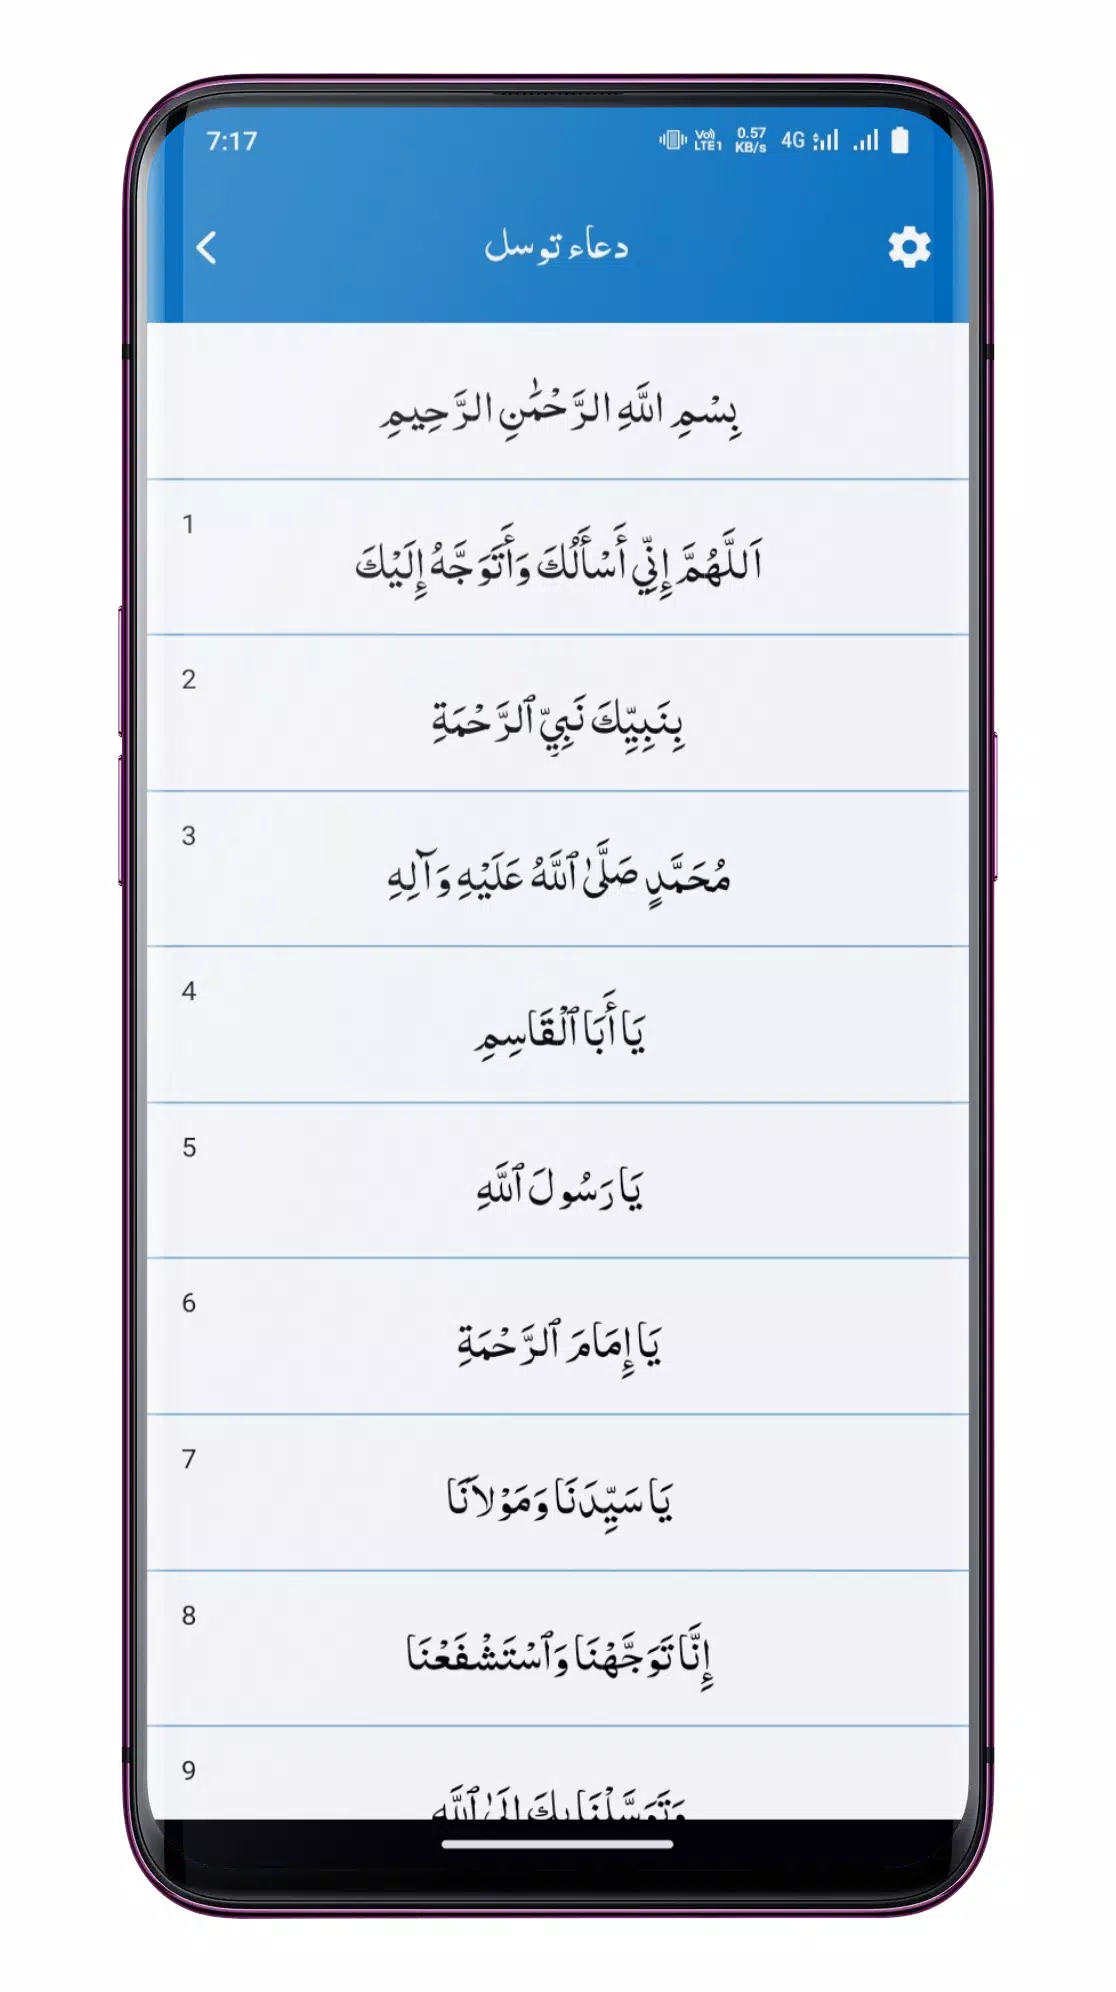 7:17
Vo) LTE1 0.57 KB/s 4G
دعاء توسل
بِسْمِ اللَّهِ الرَّحْمَٰنِ الرَّحِيمِ
1
اَللَّهُمَّ إِنِّي أَسْأَلُكَ وَأَتَوَجَّهُ إِلَيْكَ
2
بِنَبِيِّكَ نَبِيِّ ٱلرَّحْمَةِ
3
مُحَمَّدٍ صَلَّىٰ ٱللَّهُ عَلَيْهِ وَآلِهِ
4
يَا أَبَا ٱلْقَاسِمِ
5
يَا رَسُولَ ٱللَّهِ
6
يَا إِمَامَ ٱلرَّحْمَةِ
7
يَا سَيِّدَنَا وَمَوْلاَنَا
8
إِنَّا تَوَجَّهْنَا وَٱسْتَشْفَعْنَا
9
وَتَوَسَّلْنَا بِكَ إِلَىٰ ٱللَّهِ